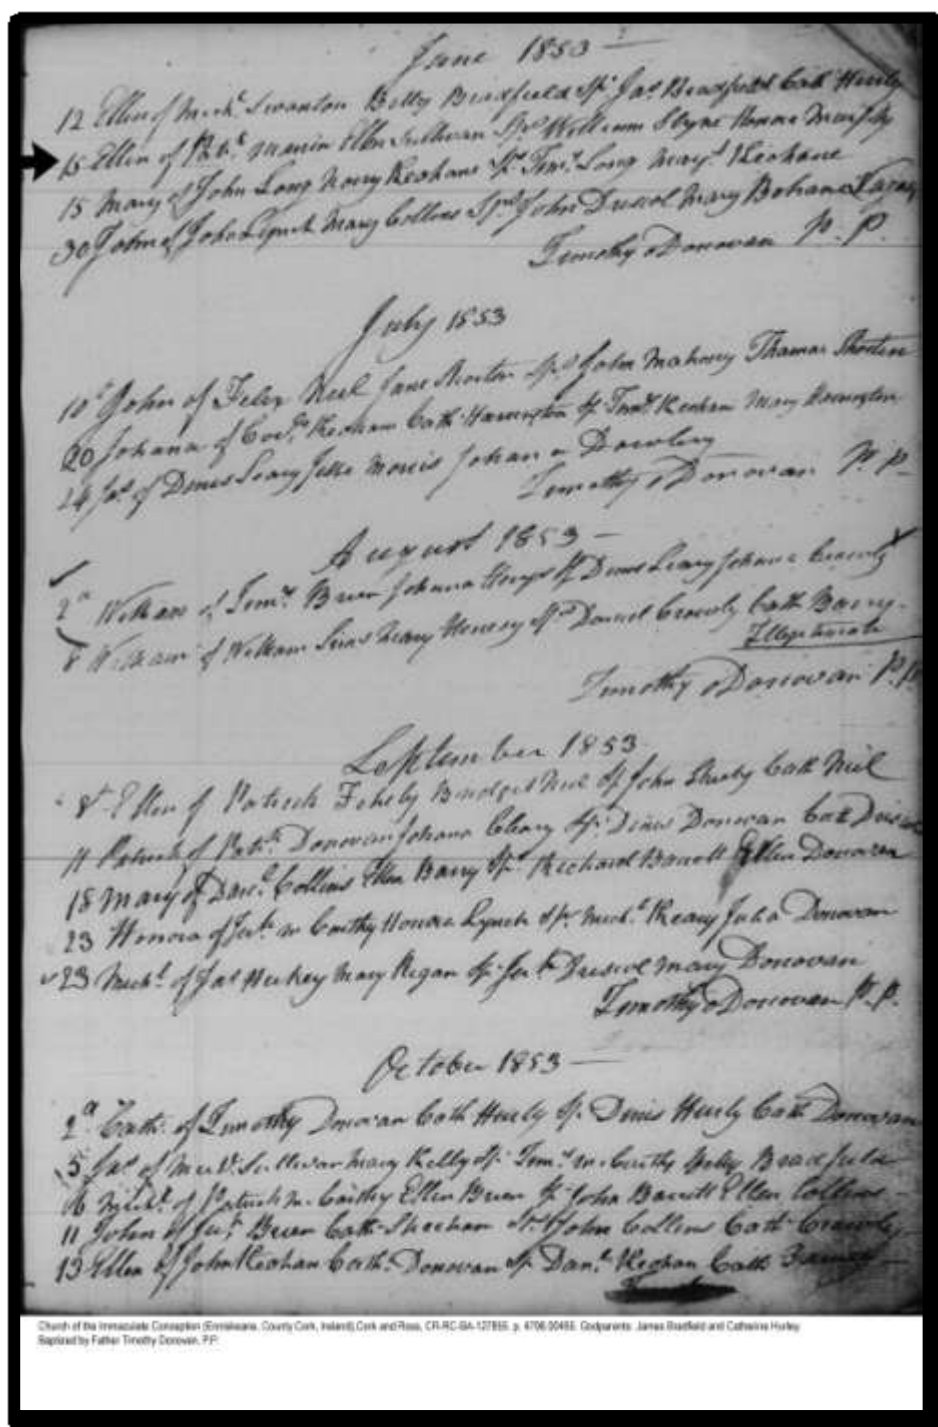 June 1853
12 Ellen of Mich.l Swanton Betty Bradfield Sp.s Jas Bradfield Cath Hurly
15 Ellen of Pat.k Ellen Sullivan Sp.s William Slyne Honora Murphy
15 Mary of John Long Nancy Keohane Sp.s Tim.y Long Marg.t Keohane
30 John of John Lynch Mary Collins Sp.s John Driscol Mary Bohane
Timothy oDonovan P. P.
July 1853
10 John of Felix Neil Jane Shorten Sp.s John Mahony Thomas Shorten
20 Johana of Keohane Cath Harrington Sp Tim.y Keohan Mary Harrington
24 Jas of Denis Leary Morris Johana
Timothy oDonovan P. P.
August 1853
2 William of Tim.y Brien Johana Sp Denis Leary Johana Crowly
8 William of William Mary Henesy Sp.s Daniel Crowly Cath Barry
Illegitimate
Timothy oDonovan P. P.
September 1853
8 Ellen of Patrick Fehely Bridget Neil Sp John Cath Neil
11 Patrick of Pat.k Donovan Johana Cleary Sp. Denis Donovan Cath
18 Mary of Dan.l Collins Ellen Barry Sp. Richard Barrett Ellen Donovan
23 Honora of m Carthy Honora Lynch Sp. Mich.l Julia Donovan
23 Mich.l of Jas Hickey Mary Regan Sp. Driscol Mary Donovan
Timothy oDonovan P. P.
October 1853
2 Cath. of Timothy Donovan Cath Hurly Sp. Denis Hurly Cath Donovan
5 Jas of Sullivan Mary Kelly Sp. Tim.y m Carthy Bradfield
6 Mich.l of Patrick m Carthy Ellen Brien Sp. John Barrett Ellen Collins
11 John of Brien Cath Sheehan Sp. John Collins Cath Crowly
13 Ellen of John Keohan Cath. Donovan Sp. Dan.l Keohan Cath
Church of the Immaculate Conception (Enniskeane, County Cork, Ireland) Cork and Ross, CR-RC-BA-127855, p. 4706.00455. Godparents: James Bradfield and Catherine Hurley
Baptized by Father Timothy Donovan, P.P.